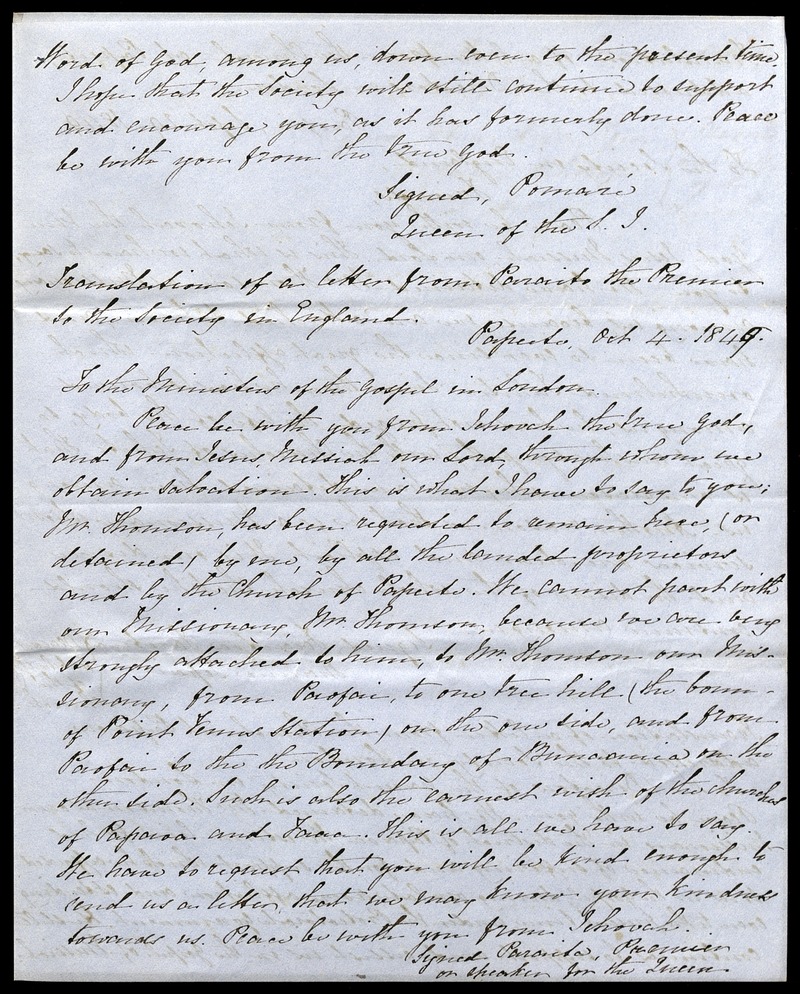 Word of God, among us, down even to the present time
I hope that the Society will still continue to support
and encourage you, as it has formerly done. Peace
be with you from the true God.
Signed, Pomare
Queen of the S. I.
Translation of a letter from Paraita the Premier
to the Society in England.
Papeete, Oct 4. 1849.
To the Ministers of the Gospel in London.
Peace be with you from Jehovah the true God,
and from Jesus, Messiah our Lord, through whom we
obtain salvation. This is what I have to say to you;
Mr. Thomson, has been requested to remain here, (or
detained) by me, by all the landed proprietors
and by the Church of Papeete. We cannot part with
our Missionary, Mr. Thomson, because we are very
strongly attached to him, to Mr. Thomson our Mis-
sionary, from Paofai, to one tree hill (the boun-
of Point Venus Station) on the one side, and from
Paofai to the the Boundary of Bunaauia on the
other side. Such is also the earnest wish of the churches
of Papaoa and Faaa. This is all we have to say.
We have to request that you will be kind enough to
send us a letter, that we may know your kindness
towards us. Peace be with you from Jehovah.
Signed Paraita, Premier
or speaker for the Queen